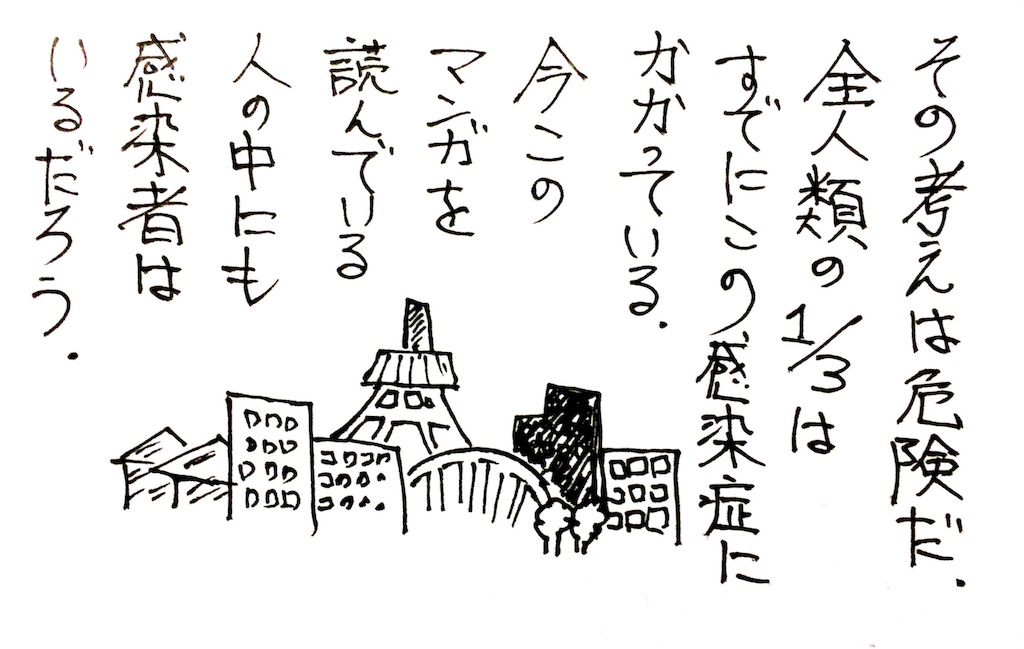 その考えは危険だ.
全人類の1/3は
すでにこの感染症に
カカっている.
今この
マンガを
読んでいる
人の中にも
感染者は
いるだろう.